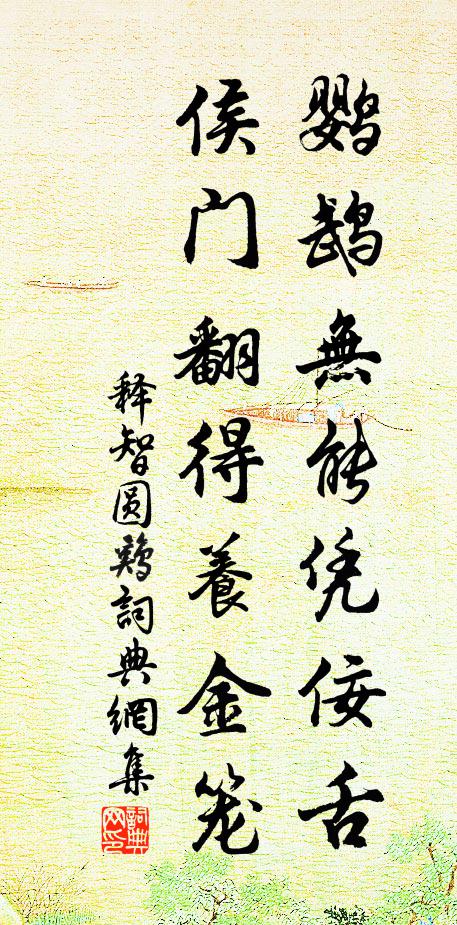 鹦鹉無能凭佞舌
侯门翻得養金笼
释智圆鷄詞典網集
詞典网印